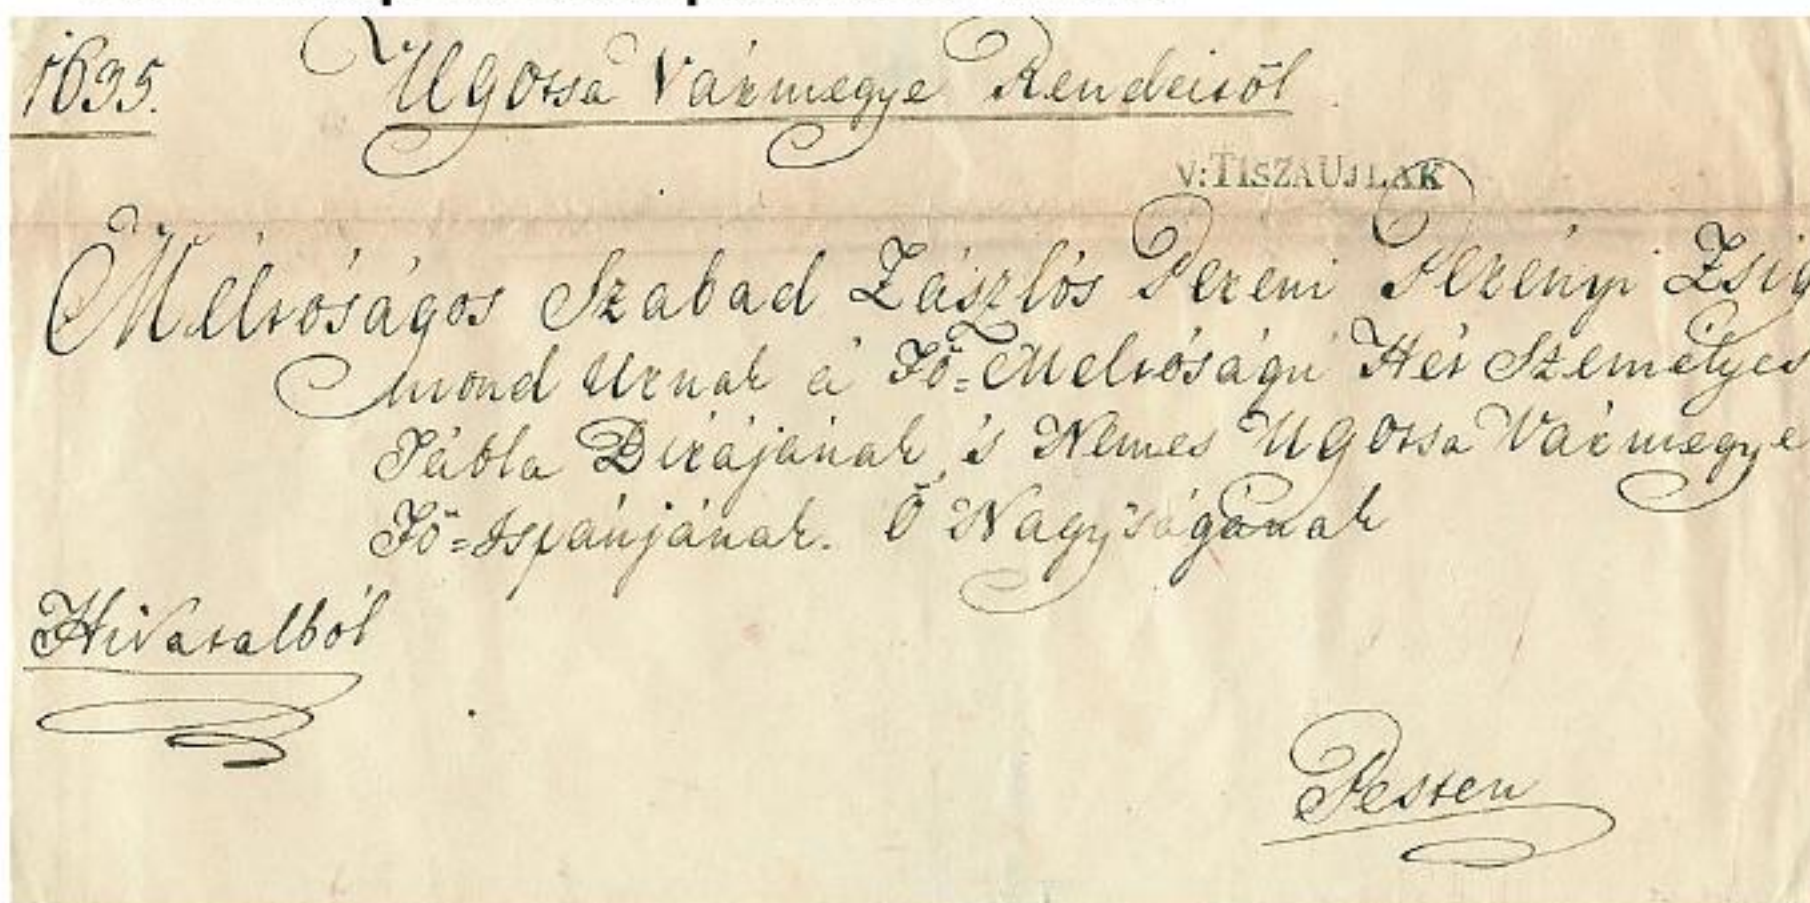 1635. Ugotsa Vármegye Rendeitöl
V:TISZAUJLAK
Méltóságos Szabad Zászlós Pereni Perényi Zsig
mond Urnak a' Fö=Méltóságú Hét Személyes
Tábla Birájának, 's Nemes Ugotsa Vármegye
Fö=Ispánjának. Ö Nagyságának
Hivatalból
Pesten